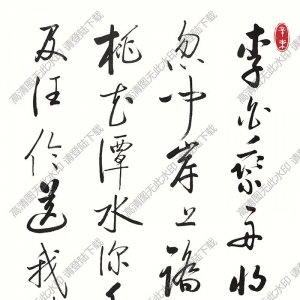 李白乘舟将
忽闻岸上踏
桃花潭水深
及汪伦送我
高清图无此水印
请登陆下载